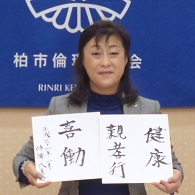 柏市倫理
会
RINRI KE
健康
親孝行
喜働